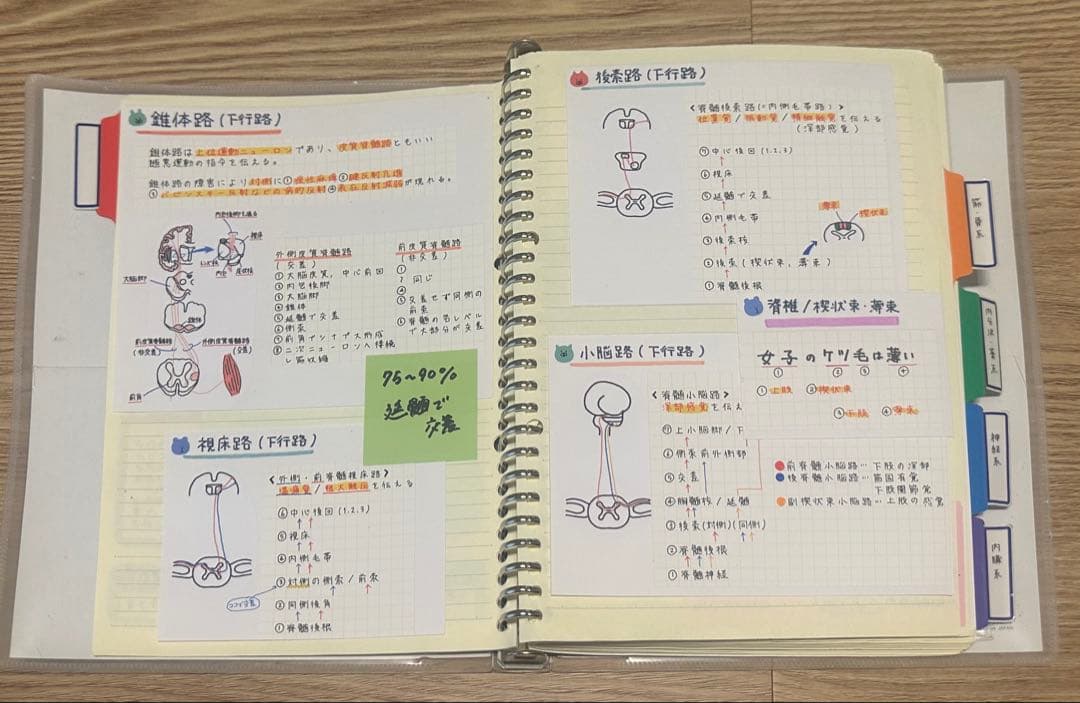 錐体路(下行路)
錐体路は上位運動ニューロンであり、皮質脊髄路ともいい
随意運動の指令を伝える。
錐体路の障害により対側に①痙性麻痺②腱反射亢進
③バビンスキー反射などの病的反射④表在反射減弱が現れる。
内包後脚を通る
視床
レンズ核
内包
尾状核
大脳脚
錐体
前皮質脊髄路
(非交差)
外側皮質脊髄路
(交差)
前角
外側皮質脊髄路
(交差)
①大脳皮質, 中心前回
②内包後脚
③大脳脚
④錐体
⑤延髄で交差
⑥側索
⑦前角でシナプス形成
⑧二次ニューロンへ接続
し筋収縮
前皮質脊髄路
(非交差)
①
〜同じ
④
⑤交差せず同側の
前索
⑥脊髄の各レベル
で大部分が交差
75~90%
延髄で
交差
視床路(下行路)
<外側・前脊髄視床路>
温痛覚/粗大触圧を伝える
⑥中心後回(1.2.3)
⑤視床
④内側毛帯
③対側の側索/前索
ココで交差
②同側後角
①脊髄後根
後索路(下行路)
<脊髄後索路(=内側毛帯路)>
位置覚/振動覚/精細触覚を伝える
(深部感覚)
⑦中心後回(1.2.3)
⑥視床
⑤延髄で交差
④内側毛帯
③後索核
②後索(楔状束, 薄束)
①脊髄後根
薄束
楔状束
脊椎/楔状束・薄束
女子のケツ毛は薄い
① ② ③ ④
①上肢 ②楔状束
③下肢 ④薄束
小脳路(下行路)
<脊髄小脳路>
深部感覚を伝え
⑦上小脳脚/下
⑥側索前外側部
⑤交差
④胸髄核/延髄
③後索(対側)(同側)
②脊髄後根
①脊髄神経
前脊髄小脳路…下肢の深部
後脊髄小脳路…筋固有覚
下肢関節覚
副楔状束小脳路…上肢の感覚
筋・骨系
神経系
内臓系